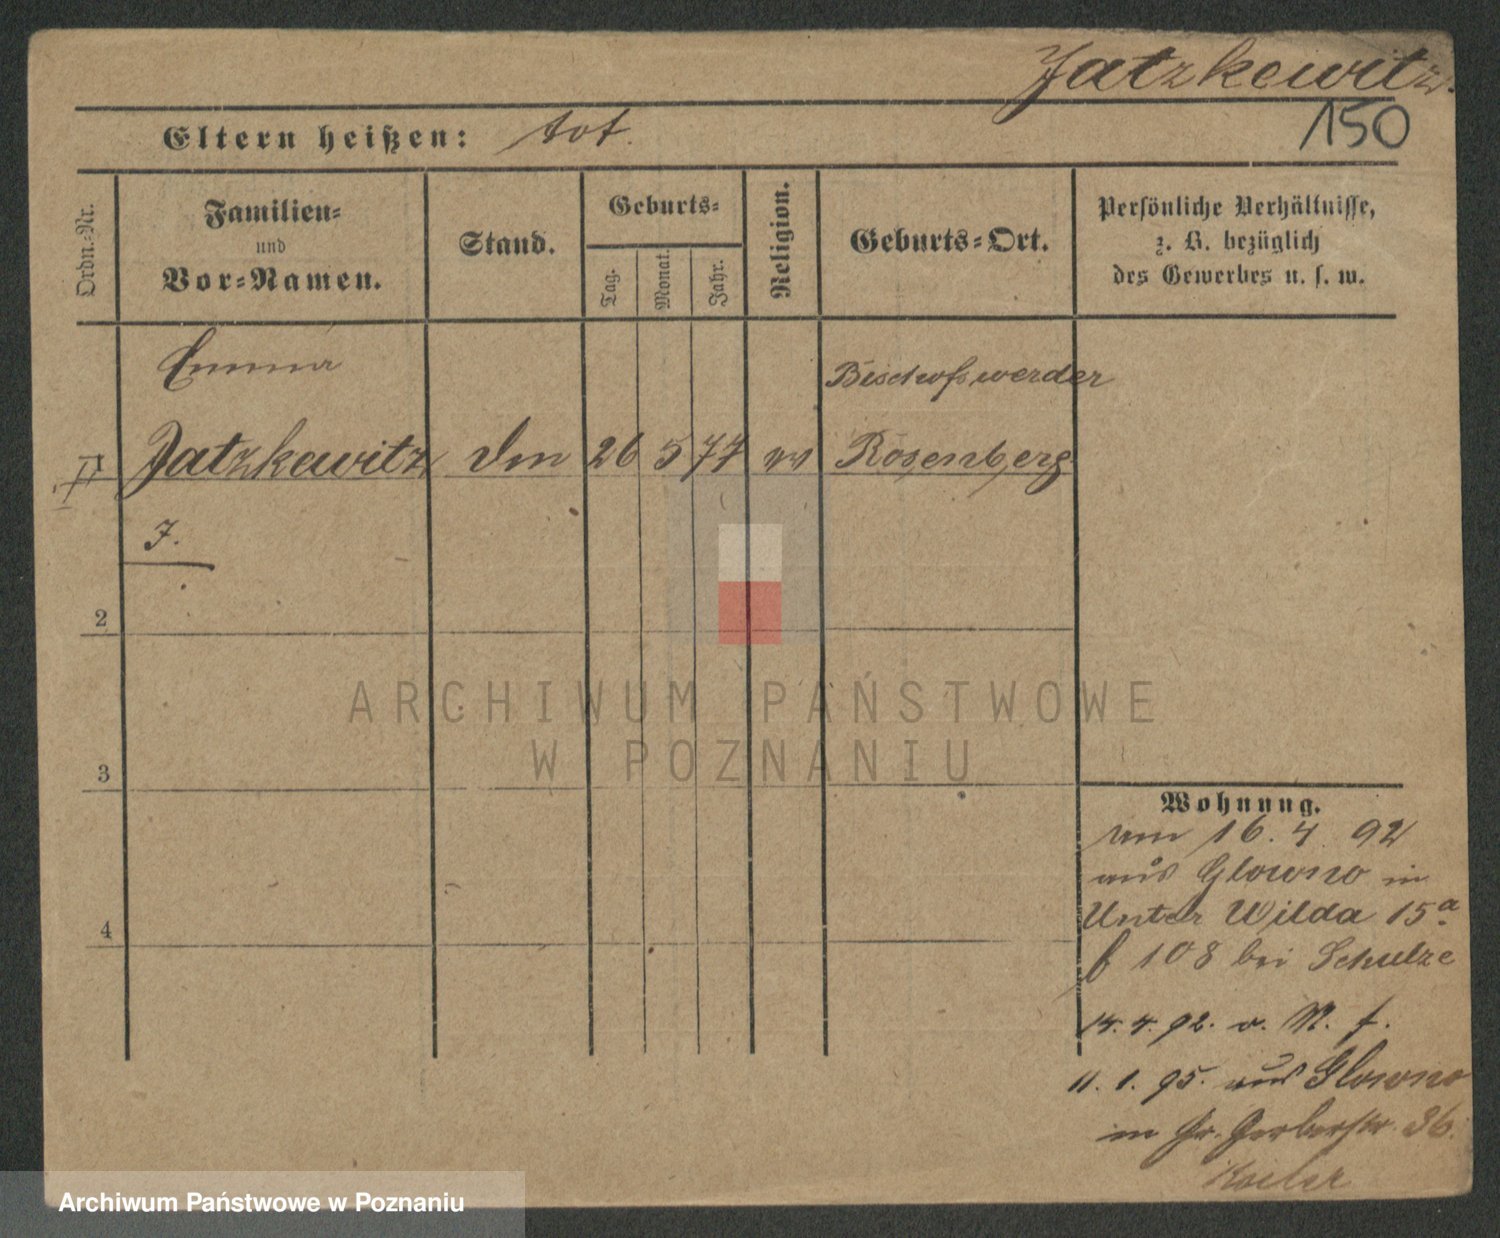 Jatzkewitz.
150
Eltern heißen: tot.
Ordn.-Nr.
Familien-
und
Vor-Namen.
Stand.
Geburts-
Tag.
Monat.
Jahr.
Religion.
Geburts-Ort.
Persönliche Verhältnisse,
z. B. bezüglich
des Gewerbes u. s. w.
Emma
Bischofswerder
Jatzkewitz 26 5 77 Rosenberg
J.
2
3
4
Wohnung.
16. 4. 92
aus Glowno in
Unter Wilda 15a
f 108 bei Schulze
14. 4. 92. v. N. f.
11. 1. 95. aus Glowno
in Gr. Gerberstr. 36.
ARCHIWUM PAŃSTWOWE
W POZNANIU
Archiwum Państwowe w Poznaniu